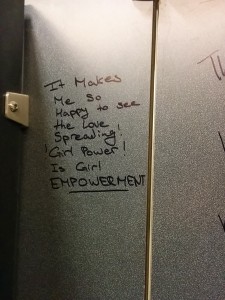 It Makes
Me So
Happy to see
the Love
Spreading!
! Girl Power!
Is Girl
EMPOWERMENT